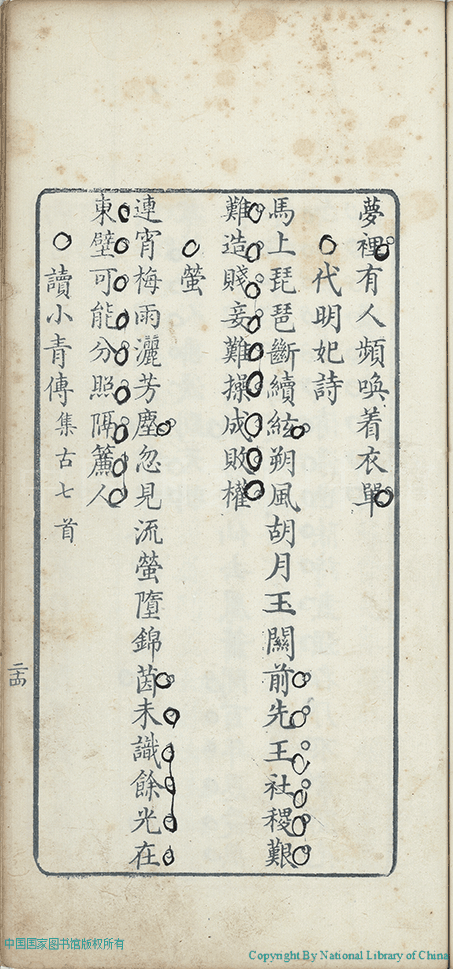 夢裡有人頻喚着衣單
代明妃詩
馬上琵琶斷續絃朔風胡月玉關前先王社稷艱
難造賤妾難操成敗權
螢
連宵梅雨灑芳塵忽見流螢墮錦茵未識餘光在
東壁可能分照隔簾人
讀小青傳集古七首
二十四
中国国家图书馆版权所有
Copyright By National Library of China